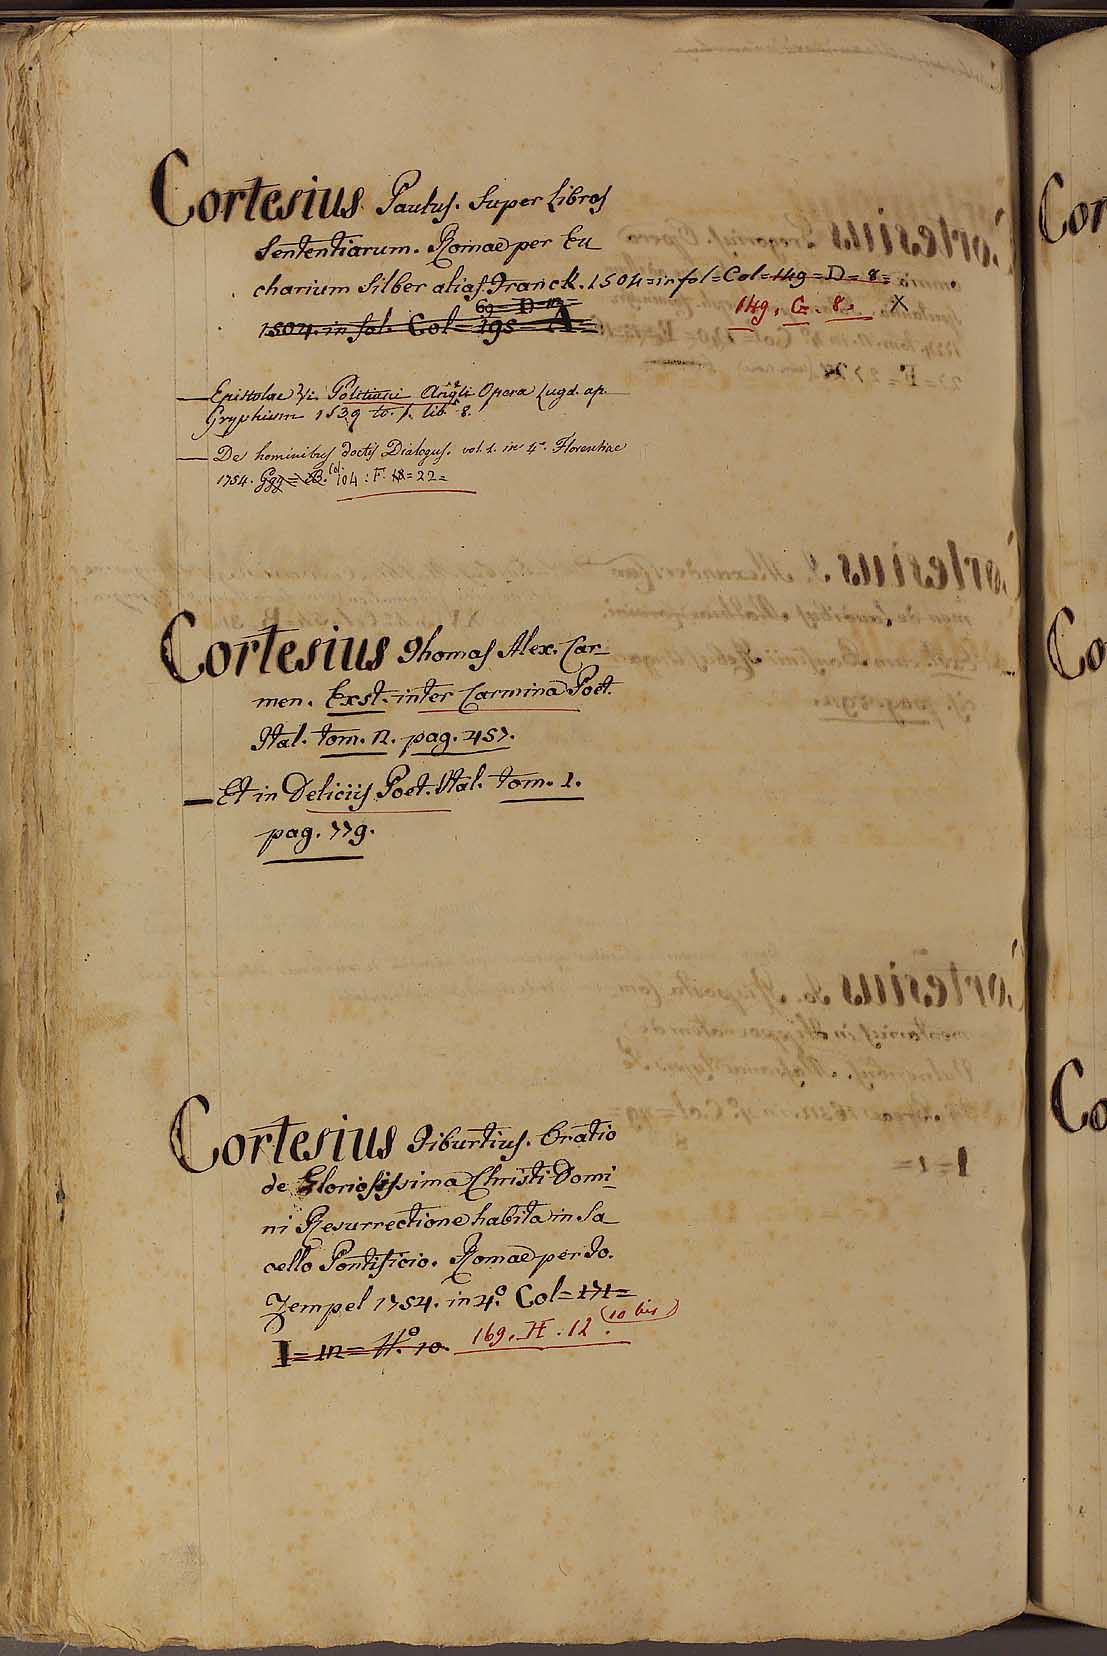 Cortesius Paulus. Super Libros
Sententiarum. Romae per Eu
charium Silber alias Franck. 1504=in fol=Col=149=D=8=
69=D=
149. G. 8. X
1504. in fol. Col=195=A=
— Epistolae Vi. Politiani Angli Opera Lugd. ap.
Gryphium 1539 to. 1. lib. 8.
— De hominibus doctis Dialogus. vol. 1. in 4° Florentiae
1754. Col. 104: F. 18=22=
Cortesius Thomas Alex. Car
men. Exst. inter Carmina Poet.
Ital. tom. 12. pag. 457.
— Et in Deliciis Poet. Ital. tom. 1.
pag. 779.
Cortesius Tiburtius. Oratio
de Gloriosissima Christi Domi
ni Resurrectione habita in Sa
cello Pontificio. Romae per Jo.
Zempel 1754. in 4° Col=171=
I=12=N° 10. 169. H. 12. (10 bis)
Cor
Co
Co